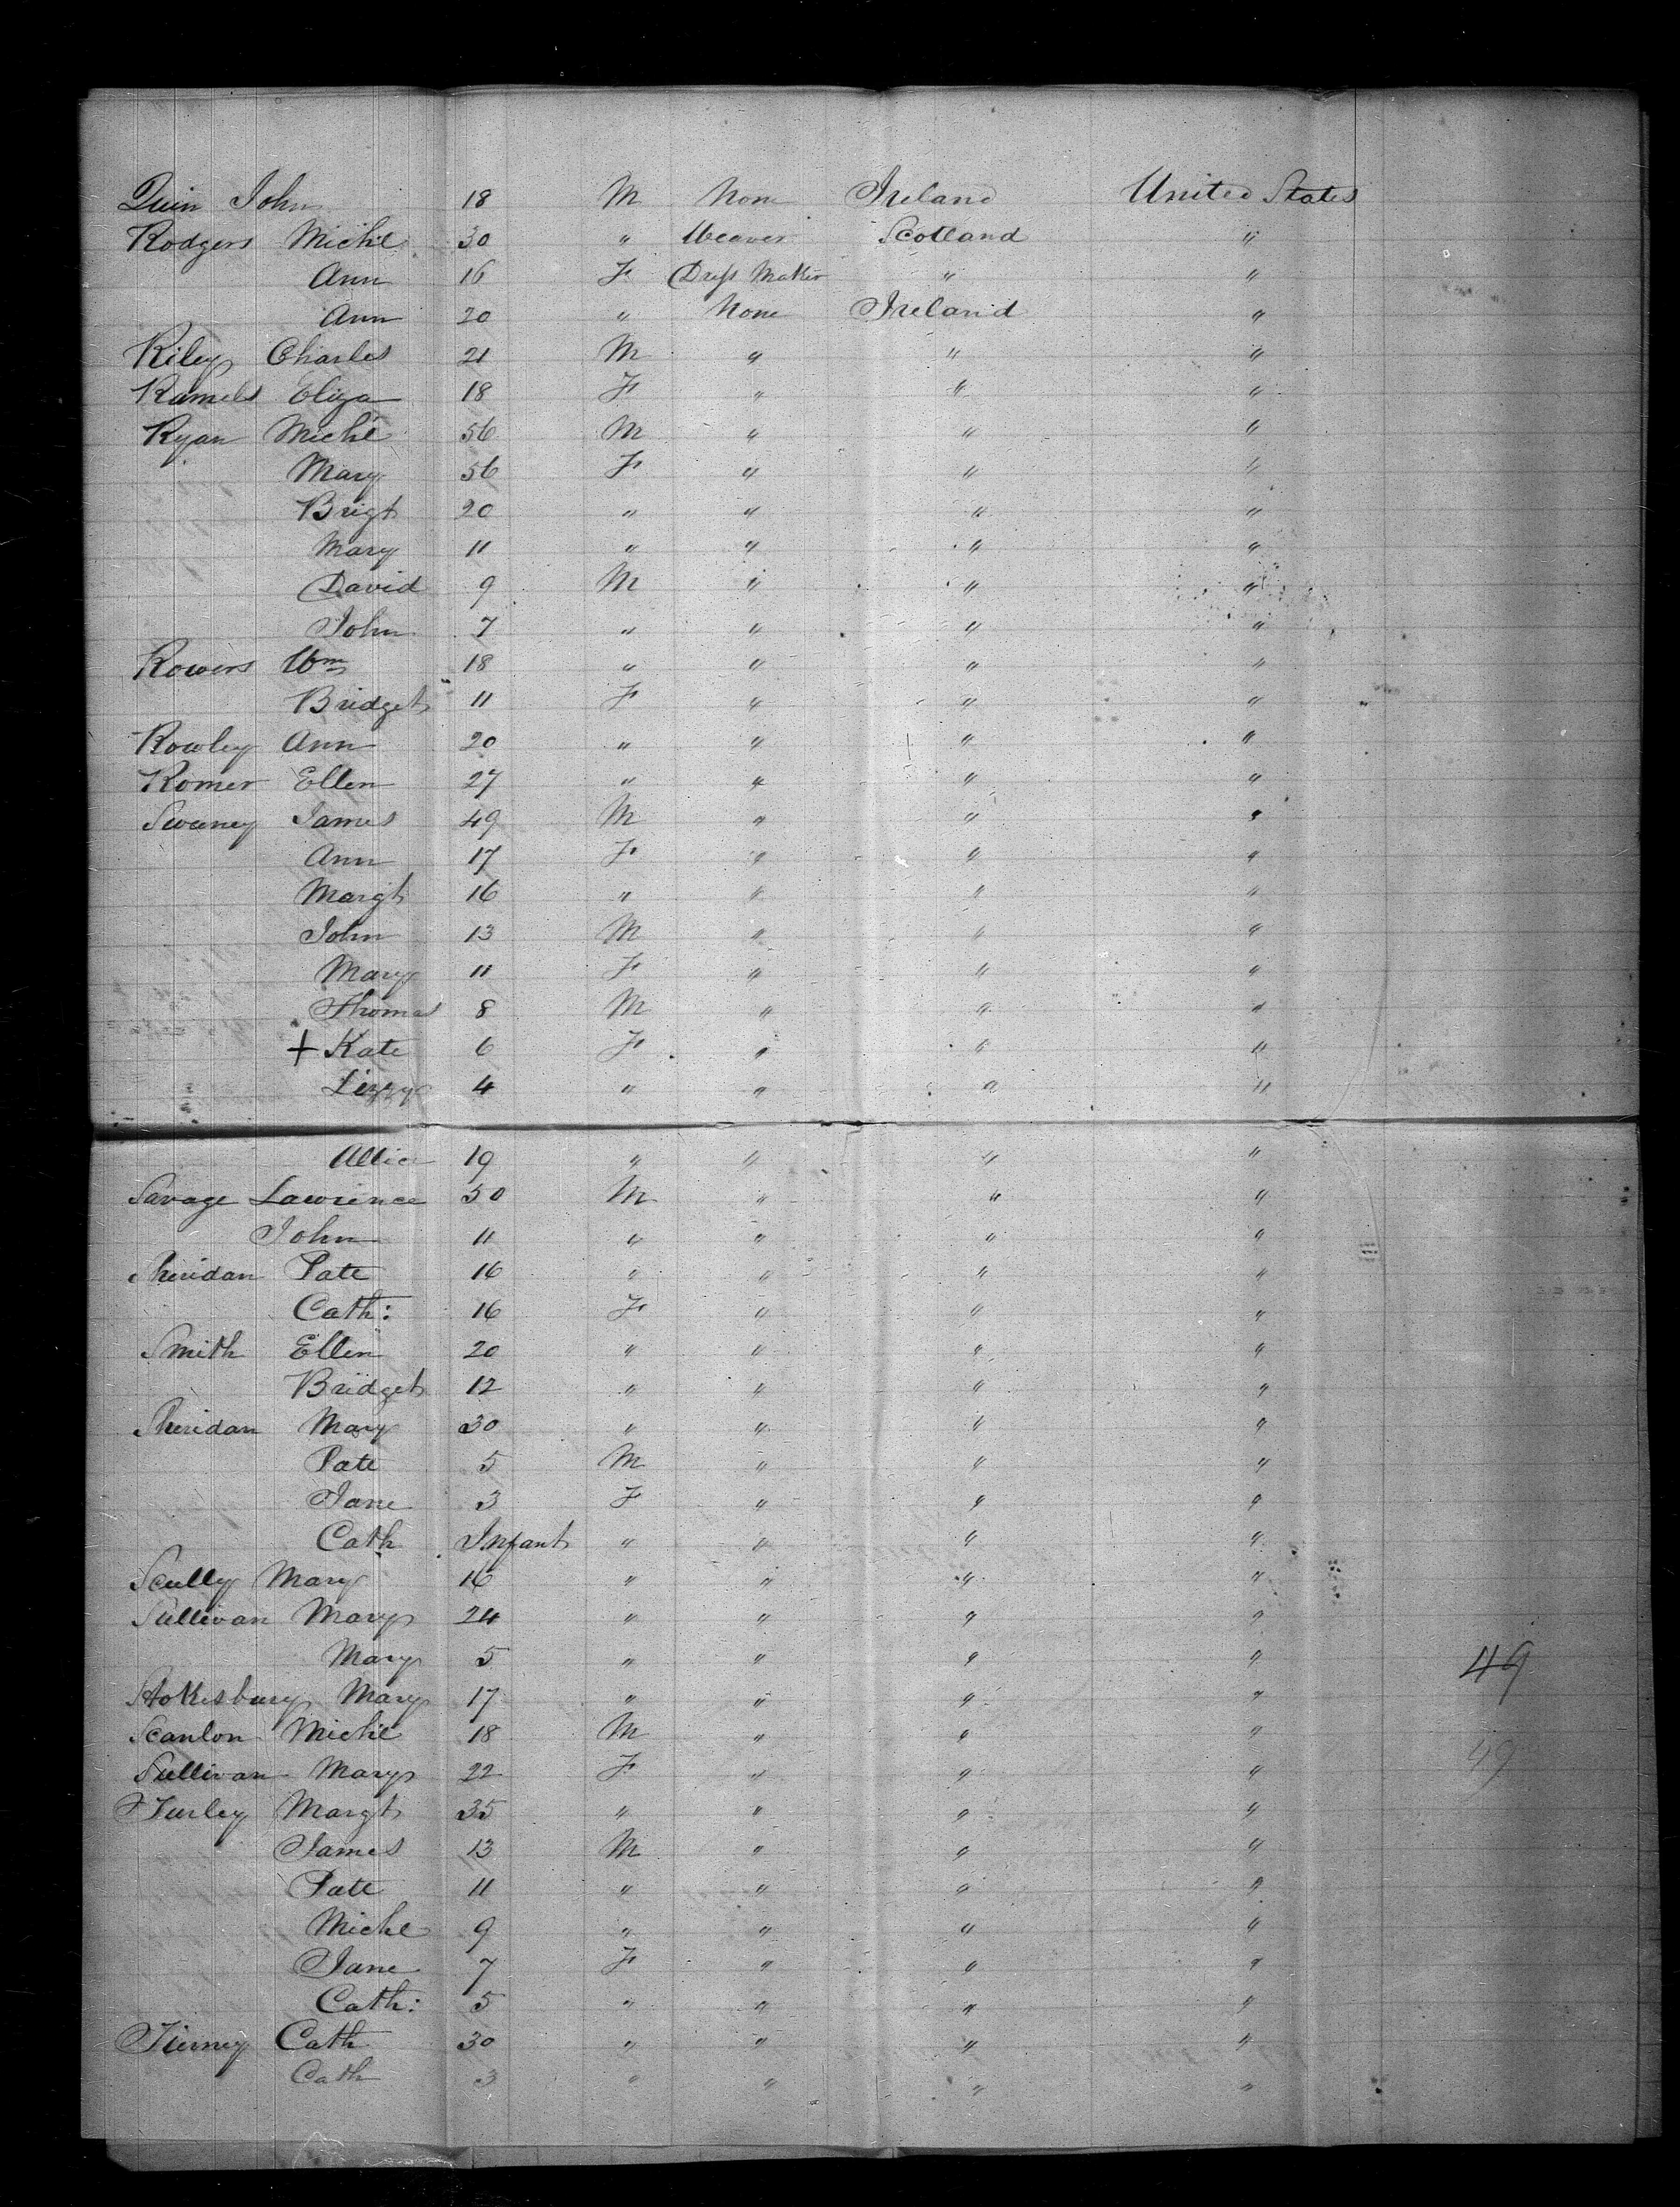 Quin John 18 M None Ireland United States
Rodgers Michl 30 " Weaver Scotland "
Ann 16 F Dress Maker " "
Ann 20 " None Ireland "
Riley Charles 21 M " " "
Eliza 18 F " " "
Ryan Michl 56 M " " "
Mary 56 F " " "
Brigt 20 " " " "
Mary 11 " " " "
David 9 M " " "
John 7 " " " "
Rowers Wm 18 " " " "
Bridget 11 F " " "
Rowley Ann 20 " " " "
Romer Ellen 27 " " " "
Sweeney James 49 M " " "
Ann 17 F " " "
Margt 16 " " " "
John 13 M " " "
Mary 11 F " " "
Thomas 8 M " " "
+ Kate 6 F " " "
Lizzy 4 " " " "
19 " " " "
Savage Lawrence 50 M " " "
John 11 " " " "
Sheridan Patt 16 " " " "
Cath: 16 F " " "
Smith Ellen 20 " " " "
Bridget 12 " " " "
Sheridan Mary 30 " " " "
Patt 5 M " " "
Jane 3 F " " "
Cath Infant " " " "
Scully Mary 16 " " " "
Sullivan Mary 24 " " " "
Mary 5 " " " " 49
Stokisbury Mary 17 " " " "
Scanlon Michl 18 M " " "
Sullivan Mary 22 F " " " 49
Turley Margt 35 " " " "
James 13 M " " "
Patt 11 " " " "
Michl 9 " " " "
Jane 7 F " " "
Cath: 5 " " " "
Tierney Cath 30 " " " "
Cath 3 " " " "